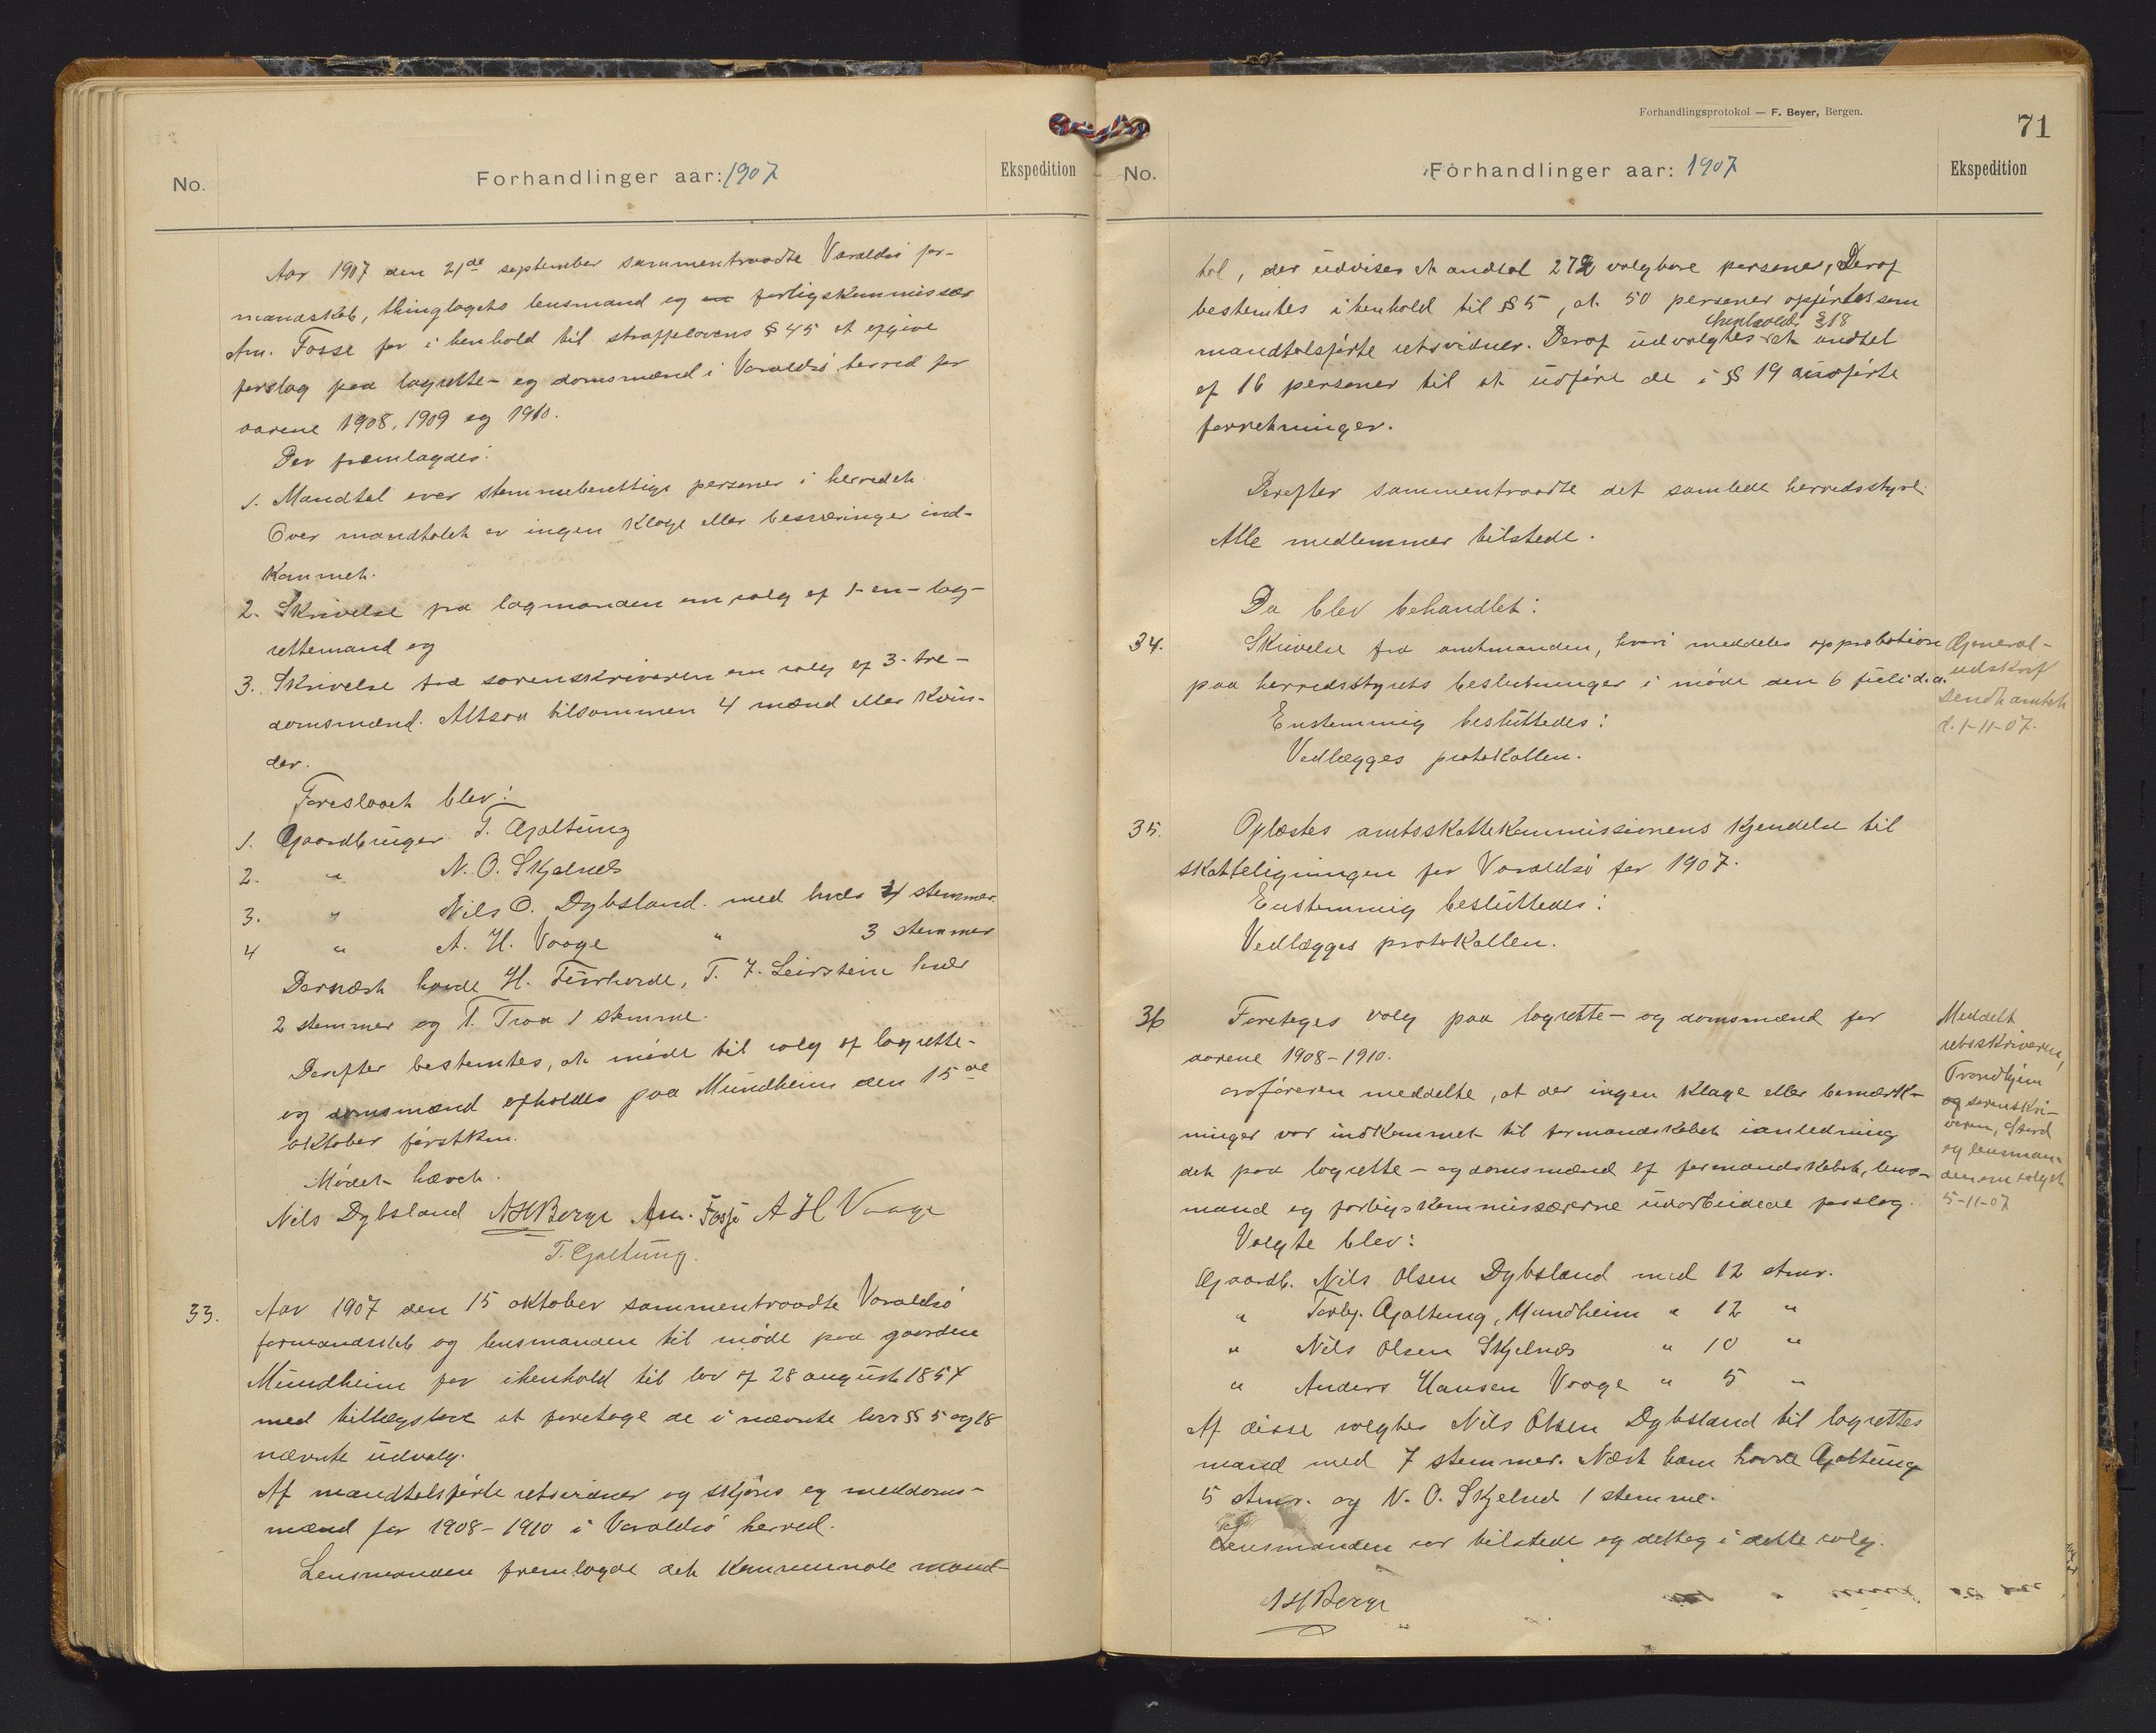 No.
Forhandlinger aar: 1907
Ekspedition
Aar 1907 den 21de september sammentraadte Varaldsø for-
mandskab, thinglagets lensmand og forligskommissær
Am. Fosse for i henhold til straffelovens § 45 at opgive
forslag paa lagrette- og domsmænd i Varaldsø herred for
aarene 1908, 1909 og 1910.
Der fremlagdes:
1. Mandtal over stemmeberettige personer i herredet.
Over mandtalet er ingen klage eller besværinger ind-
kommet.
2. Skrivelse fra lagmanden om valg af 1-en-lag-
rettemand og
3. Skrivelse fra sorenskriveren om valg af 3-tre-
domsmænd. Altsaa tilsammen 4 mænd eller kvin-
der.
Foreslaaet blev:
1. Gaardbruger T. Gjaltung
2. " N. O. Skjelnes
3. " Nils O. Dybsland med hver 4 stemmer.
4 " A. H. Vaage " 3 stemmer
Dernæst havde H. Furhovde, T. J. Leirstein hver
2 stemmer og T. Traa 1 stemme.
Derefter bestemtes, at møde til valg af lagrette-
og domsmænd afholdes paa Mundheim den 15de
oktober førstkm.
Mødet hævet.
Nils Dybsland AHBerge Am. Fosse A H Vaage
T. Gjaltung.
33. Aar 1907 den 15 oktober sammentraadte Varaldsø
formandskab og lensmanden til møde paa gaarden
Mundheim for i henhold til lov af 28 august 1854
med tillægslove at foretage de i nævnte lov §§ 5 og 18
nævnte udvalg.
Af mandtalsførte retsvidner og skjøns og meddoms-
mænd for 1908-1910 i Varaldsø herred.
Lensmanden fremlagde det kommunale mand-
Forhandlingsprotokol — F. Beyer, Bergen.
71
No.
Forhandlinger aar: 1907
Ekspedition
tal, der udviser et andtal valgbare personer, Deraf
bestemtes i henhold til § 5, at 50 personer opførtes som
i henhold § 18
mandtalsførte retsvidner. Deraf udvalgtes et andtal
af 16 personer til at udføre de i § 19 anførte
forretninger.
Derefter sammentraadte det samlede herredsstyre.
Alle medlemmer tilstede.
Da blev behandlet:
34. Skrivelse fra amtmanden, hvori meddeles approbation
paa herredsstyrets beslutninger i møde den 6 juli d.a.
Enstemmig besluttedes:
Vedlægges protokollen.
General-
udskrif
sendt amtet
d. 1-11-07.
35. Oplæstes amtsskattekommissionens kjendelse til
skatteligningen for Varaldsø for 1907.
Enstemmig besluttedes:
Vedlægges protokollen.
36 Foretages valg paa lagrette- og domsmænd for
aarene 1908-1910.
Ordføreren meddelte, at der ingen klage eller bemærk-
ninger var indkommet til formandskabet i anledning
det paa lagrette- og domsmænd af formandskabet, lens-
mand og forligskommissærerne udarbeidede forslag.
Meddelt
retsskriveren,
Trondhjem
og sorenskri-
veren, Stord
og lensman-
den om valget
5-11-07
Valgte blev:
Gaardb. Nils Olsen Dybsland med 12 stmr.
" Torbj. Gjaltung, Mundheim " 12 "
" Nils Olsen Skjelnes " 10 "
" Anders Hansen Vaage " 5 "
Af disse valgtes Nils Olsen Dybsland til lagrettes
mand med 7 stemmer. Næst ham havde Gjaltung
5 stmr. og N. O. Skjelnes 1 stemme.
Lensmanden var tilstede og deltog i dette valg.
AHBerge